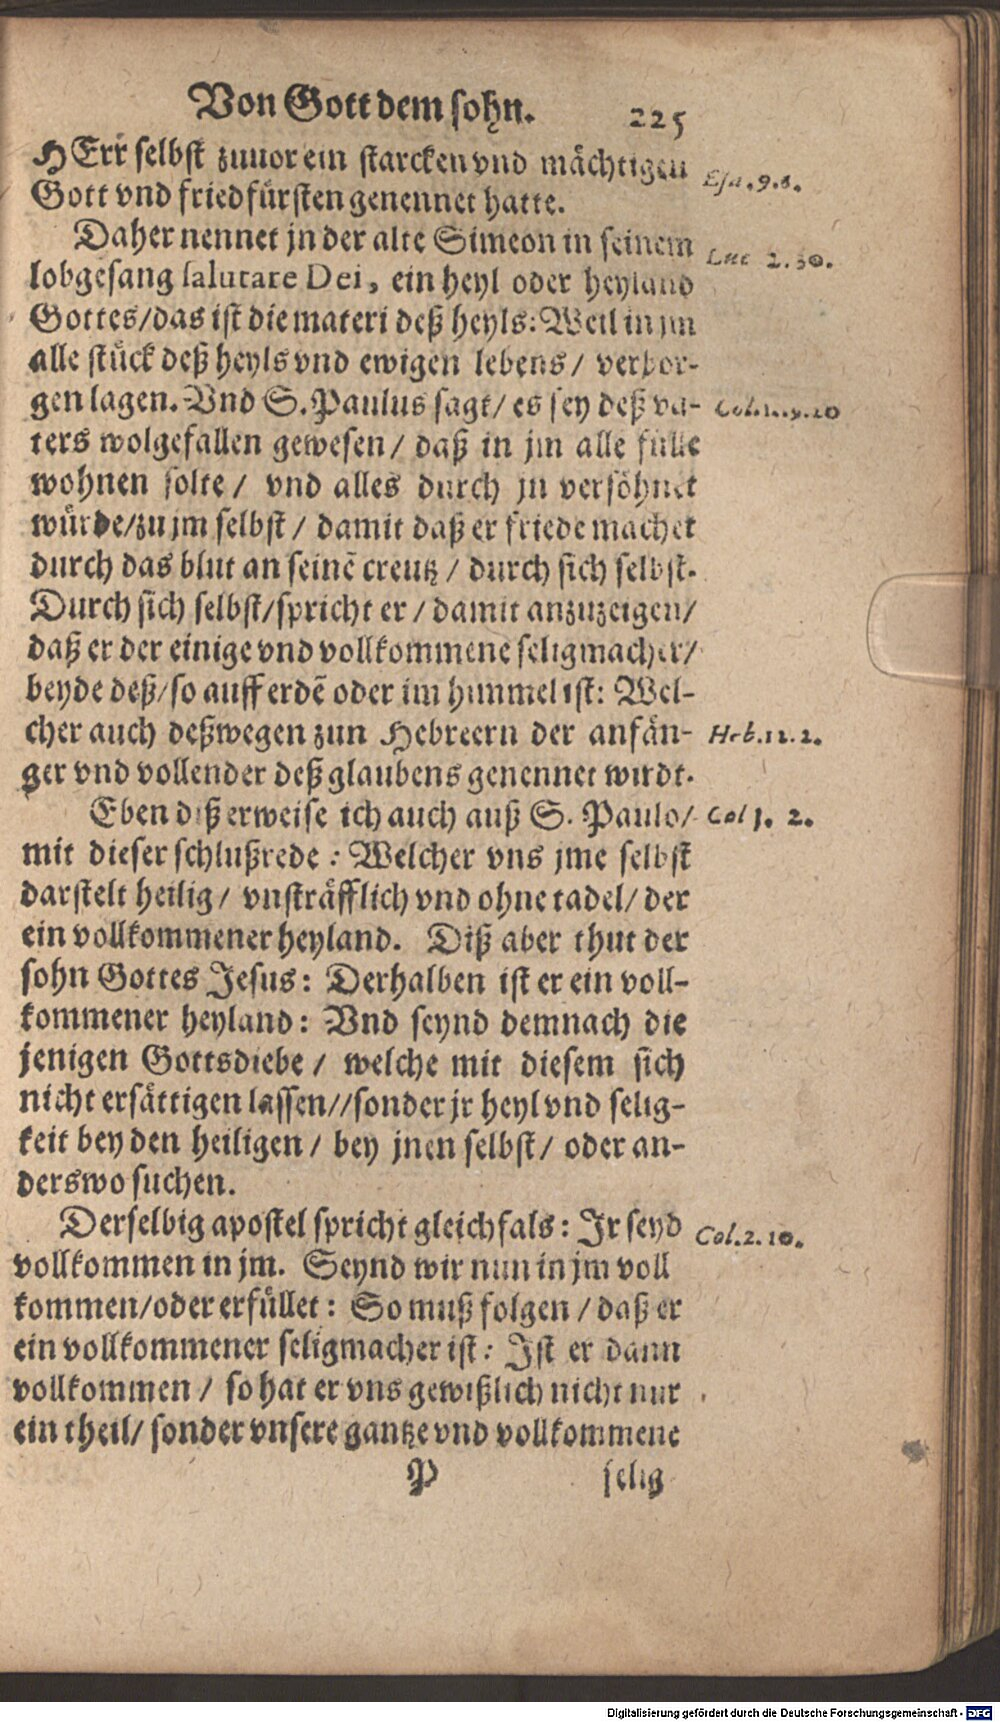 Von Gott dem sohn. 225
HErr selbst zuuor ein starcken vnd mächtigen
Esa. 9. 6.
Gott vnd friedfürsten genennet hatte.
Daher nennet jn der alte Simeon in seinem
Luc 2. 30.
lobgesang salutare Dei, ein heyl oder heyland
Gottes/das ist die materi deß heyls: Weil in jm
alle stück deß heyls vnd ewigen lebens/ verbor-
gen lagen. Vnd S. Paulus sagt/ es sey deß va-
Col. 1. 19. 20
ters wolgefallen gewesen/ daß in jm alle fülle
wohnen solte/ vnd alles durch jn versöhnet
würde/zu jm selbst/ damit daß er friede machet
durch das blut an seinē creutz/ durch sich selbst.
Durch sich selbst/spricht er/ damit anzuzeigen/
daß er der einige vnd vollkommene seligmacher/
beyde deß/so auff erdē oder im himmel ist: Wel-
cher auch deßwegen zun Hebreern der anfän-
Heb. 12. 2.
ger vnd vollender deß glaubens genennet wirdt.
Eben diß erweise ich auch auß S. Paulo/
Col 1. 2.
mit dieser schlußrede: Welcher vns jme selbst
darstelt heilig/ vnsträfflich vnd ohne tadel/ der
ein vollkommener heyland. Diß aber thut der
sohn Gottes Jesus: Derhalben ist er ein voll-
kommener heyland: Vnd seynd demnach die
jenigen Gottsdiebe/ welche mit diesem sich
nicht ersättigen lassen//sonder jr heyl vnd selig-
keit bey den heiligen/ bey jnen selbst/ oder an-
derswo suchen.
Derselbig apostel spricht gleichfals: Jr seyd
Col. 2. 10.
vollkommen in jm. Seynd wir nun in jm voll
kommen/oder erfüllet: So muß folgen/ daß er
ein vollkommener seligmacher ist: Ist er dann
vollkommen/ so hat er vns gewißlich nicht nur
ein theil/ sonder vnsere gantze vnd vollkommene
P selig
Digitalisierung gefördert durch die Deutsche Forschungsgemeinschaft - DFG